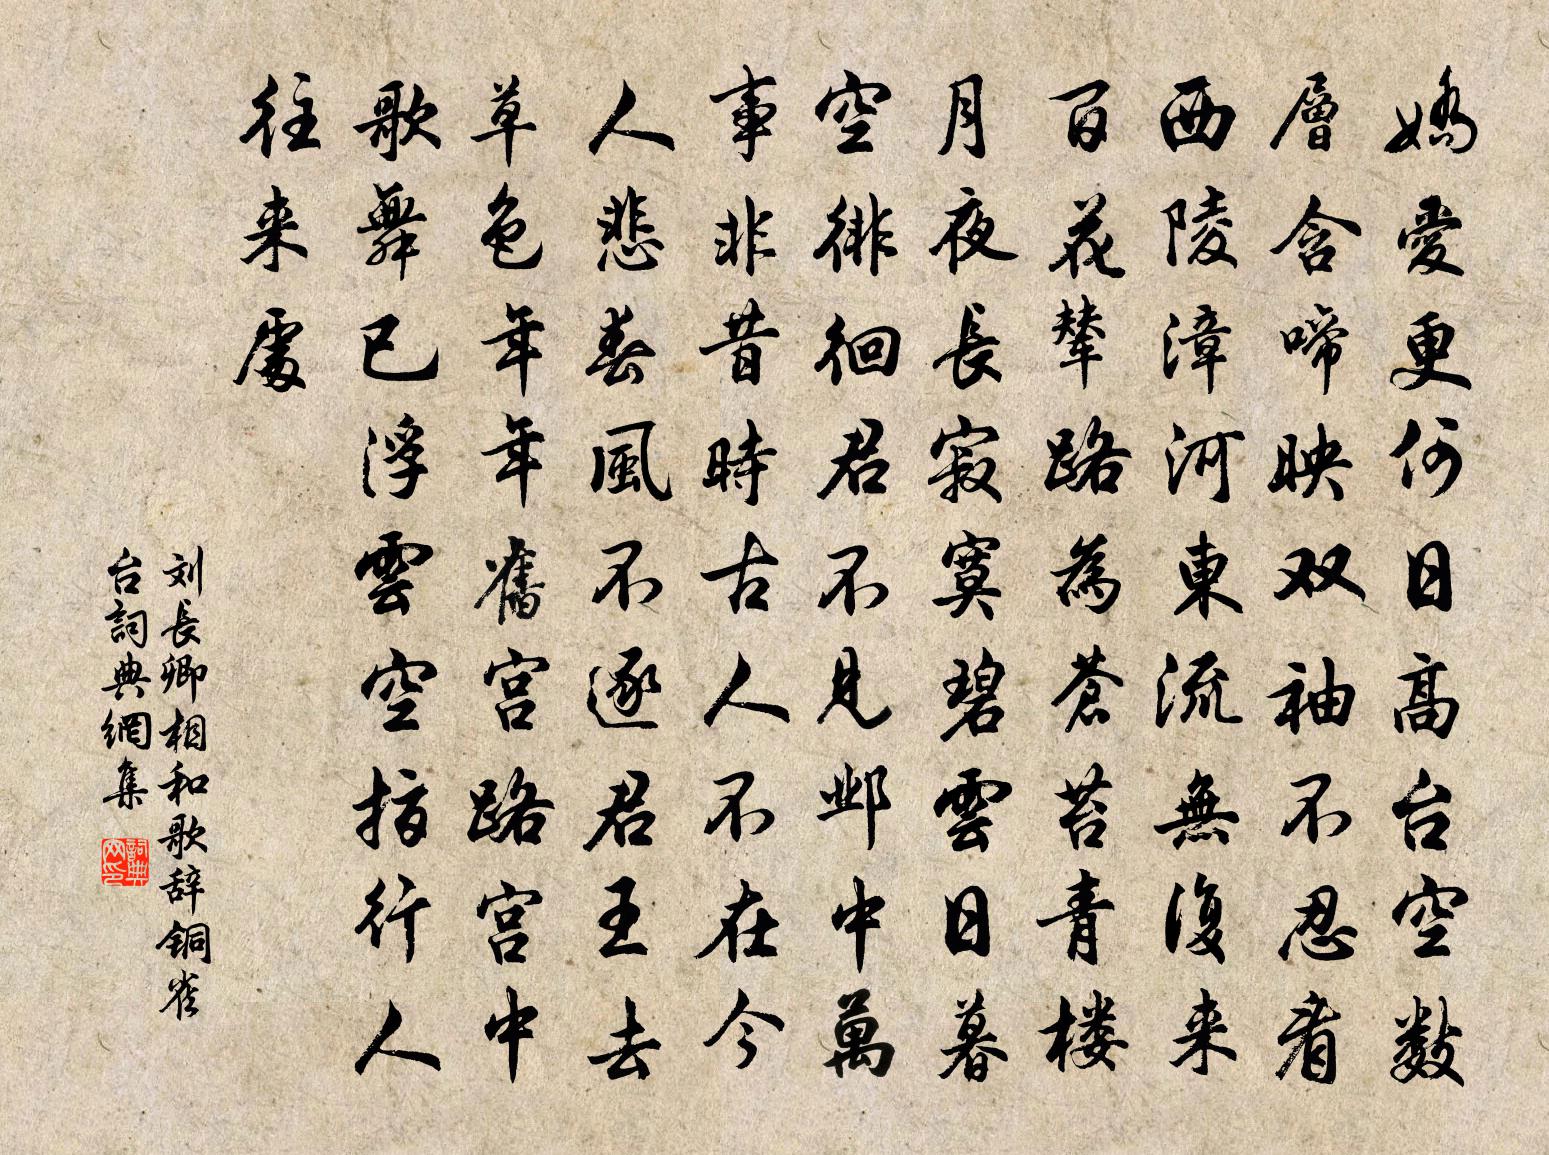 嬌愛更何日高台空數
層含啼映双袖不忍看
西陵漳河東流無復来
百花輦路為蒼苔青楼
月夜長寂寞碧雲日暮
空徘徊君不見邺中萬
事非昔時古人不在今
人悲春風不逐君王去
草色年年舊宮路宮中
歌舞已浮雲空指行人
往来處
刘長卿相和歌辞铜雀
台詞典網集
詞典网印